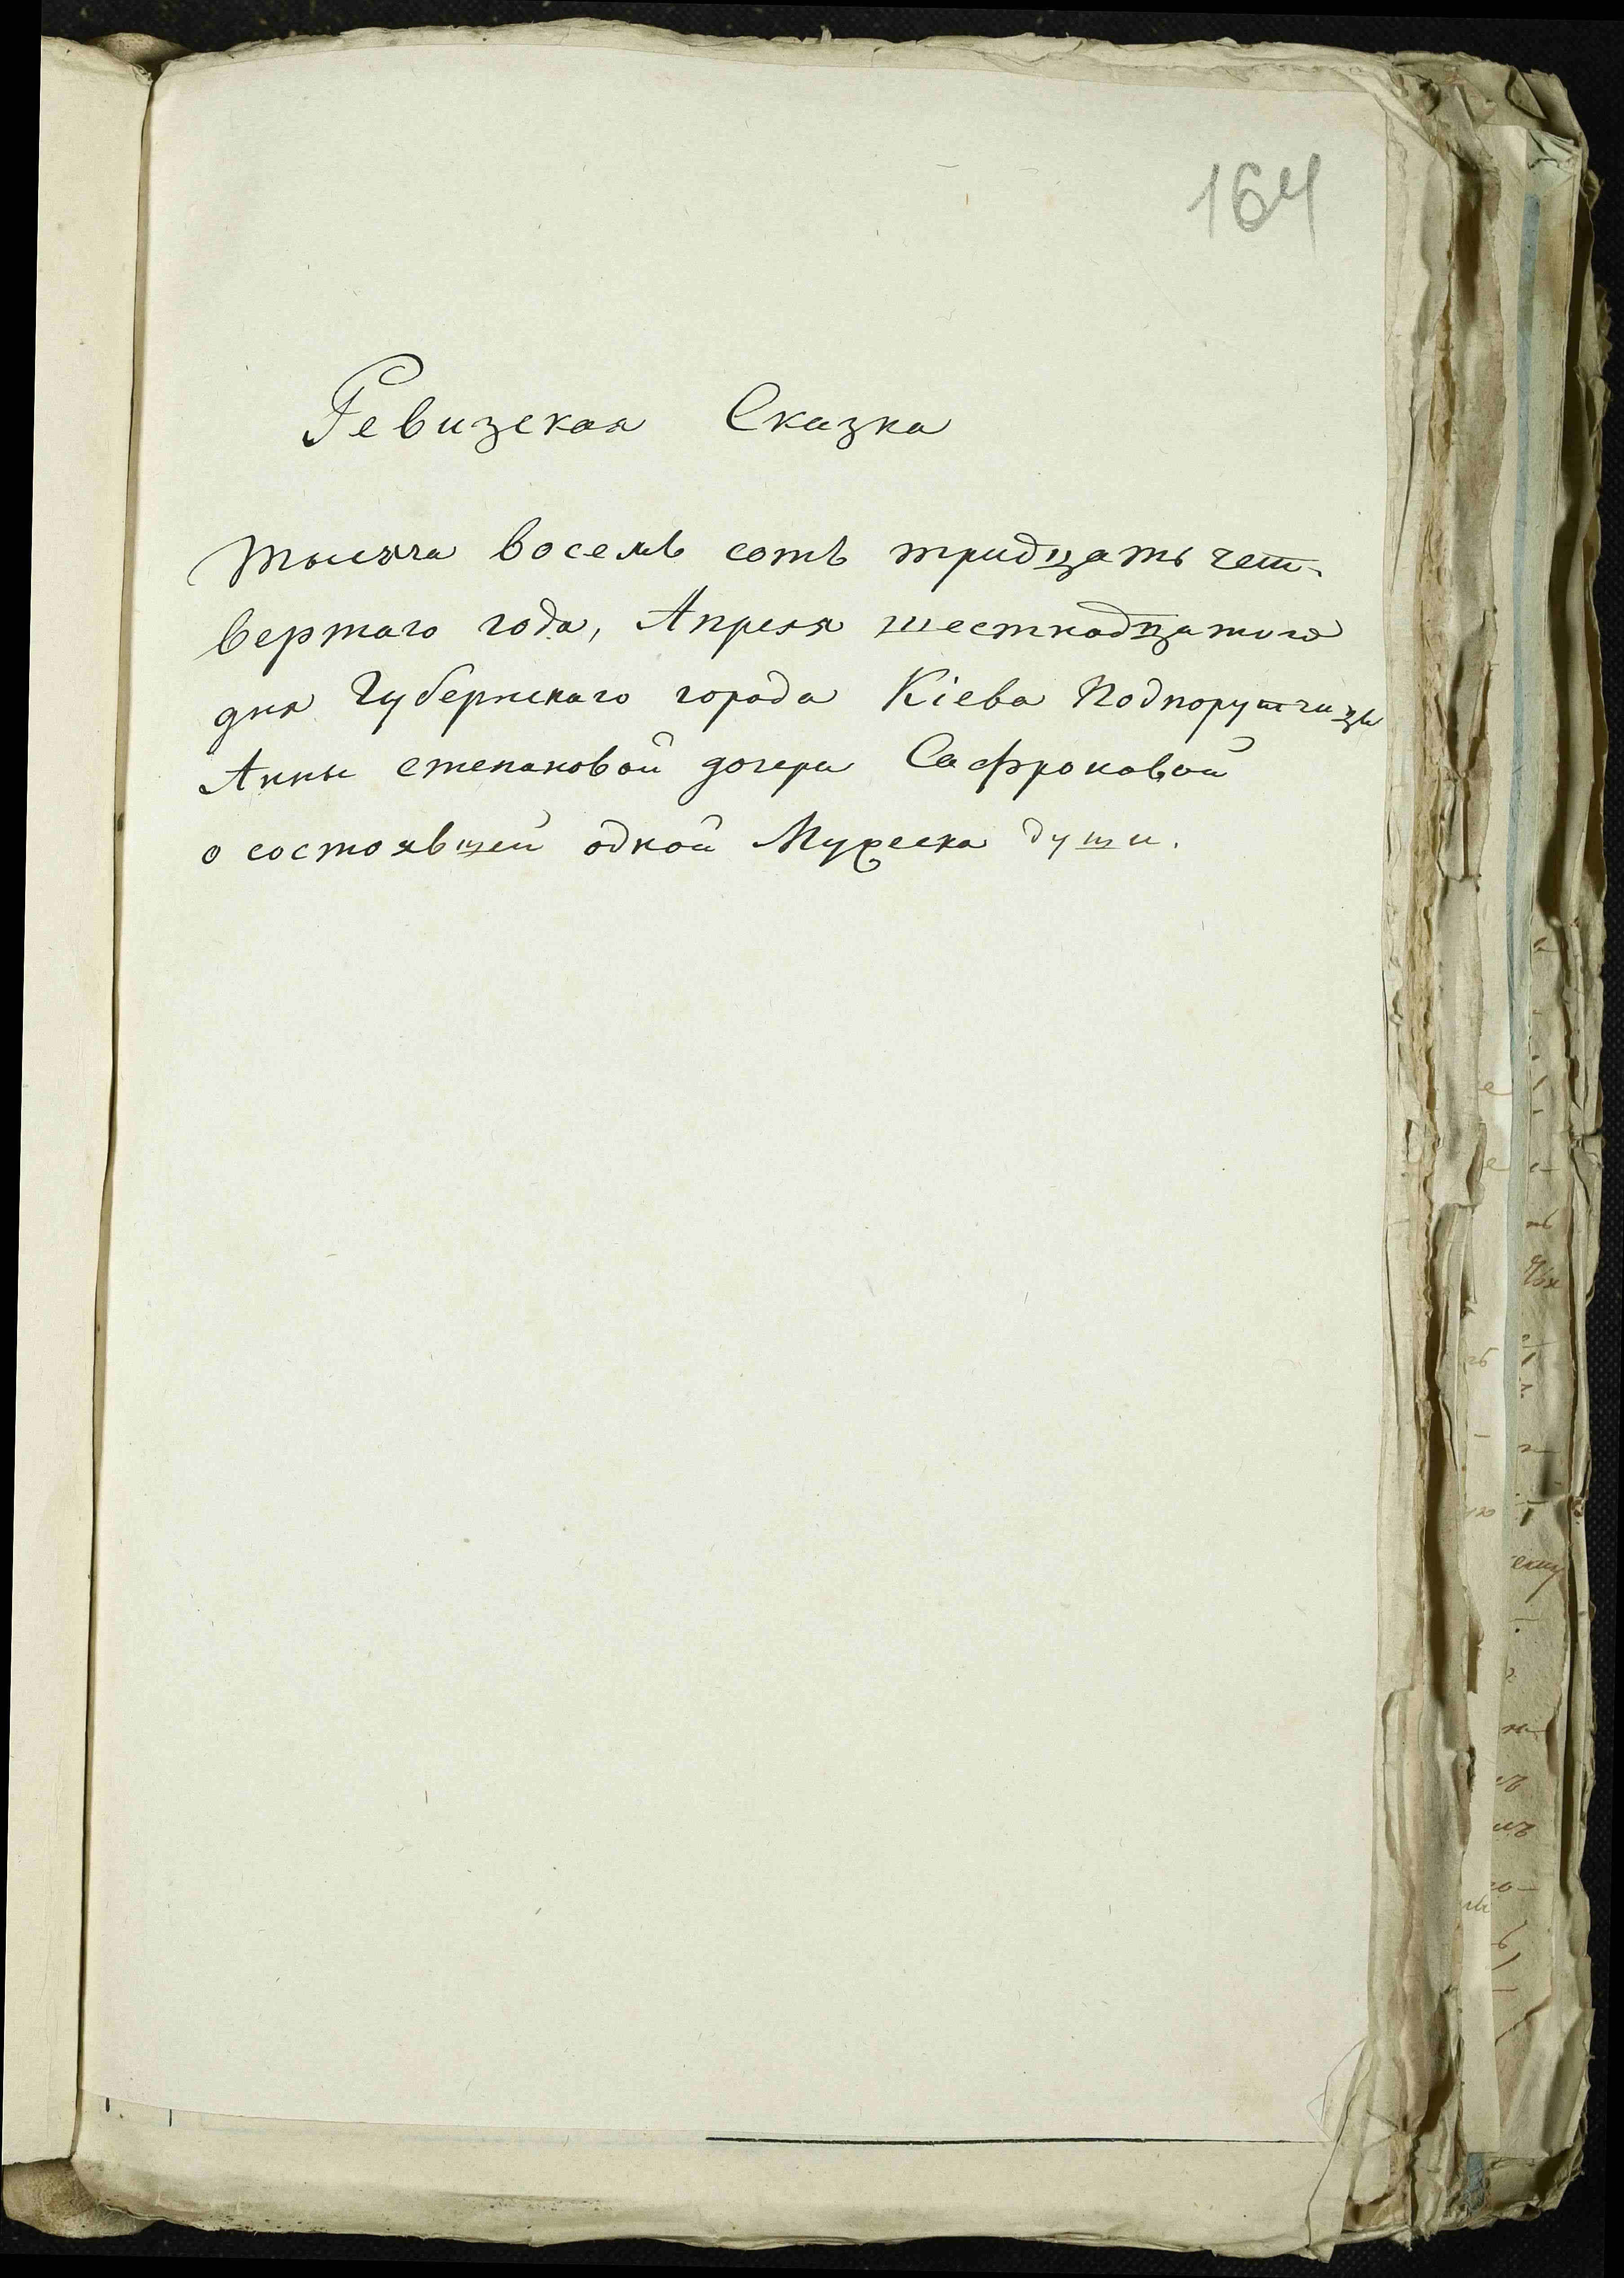 164
Ревизская Сказка
Тысяча восемь сотъ тридцать чет-
вертаго года, Апреля шестнадцатого
дня Губернскаго города Кіева Подпорутчицы
Анны степановой дочери Сафроновой
о состоявшей одной Мужеска души.